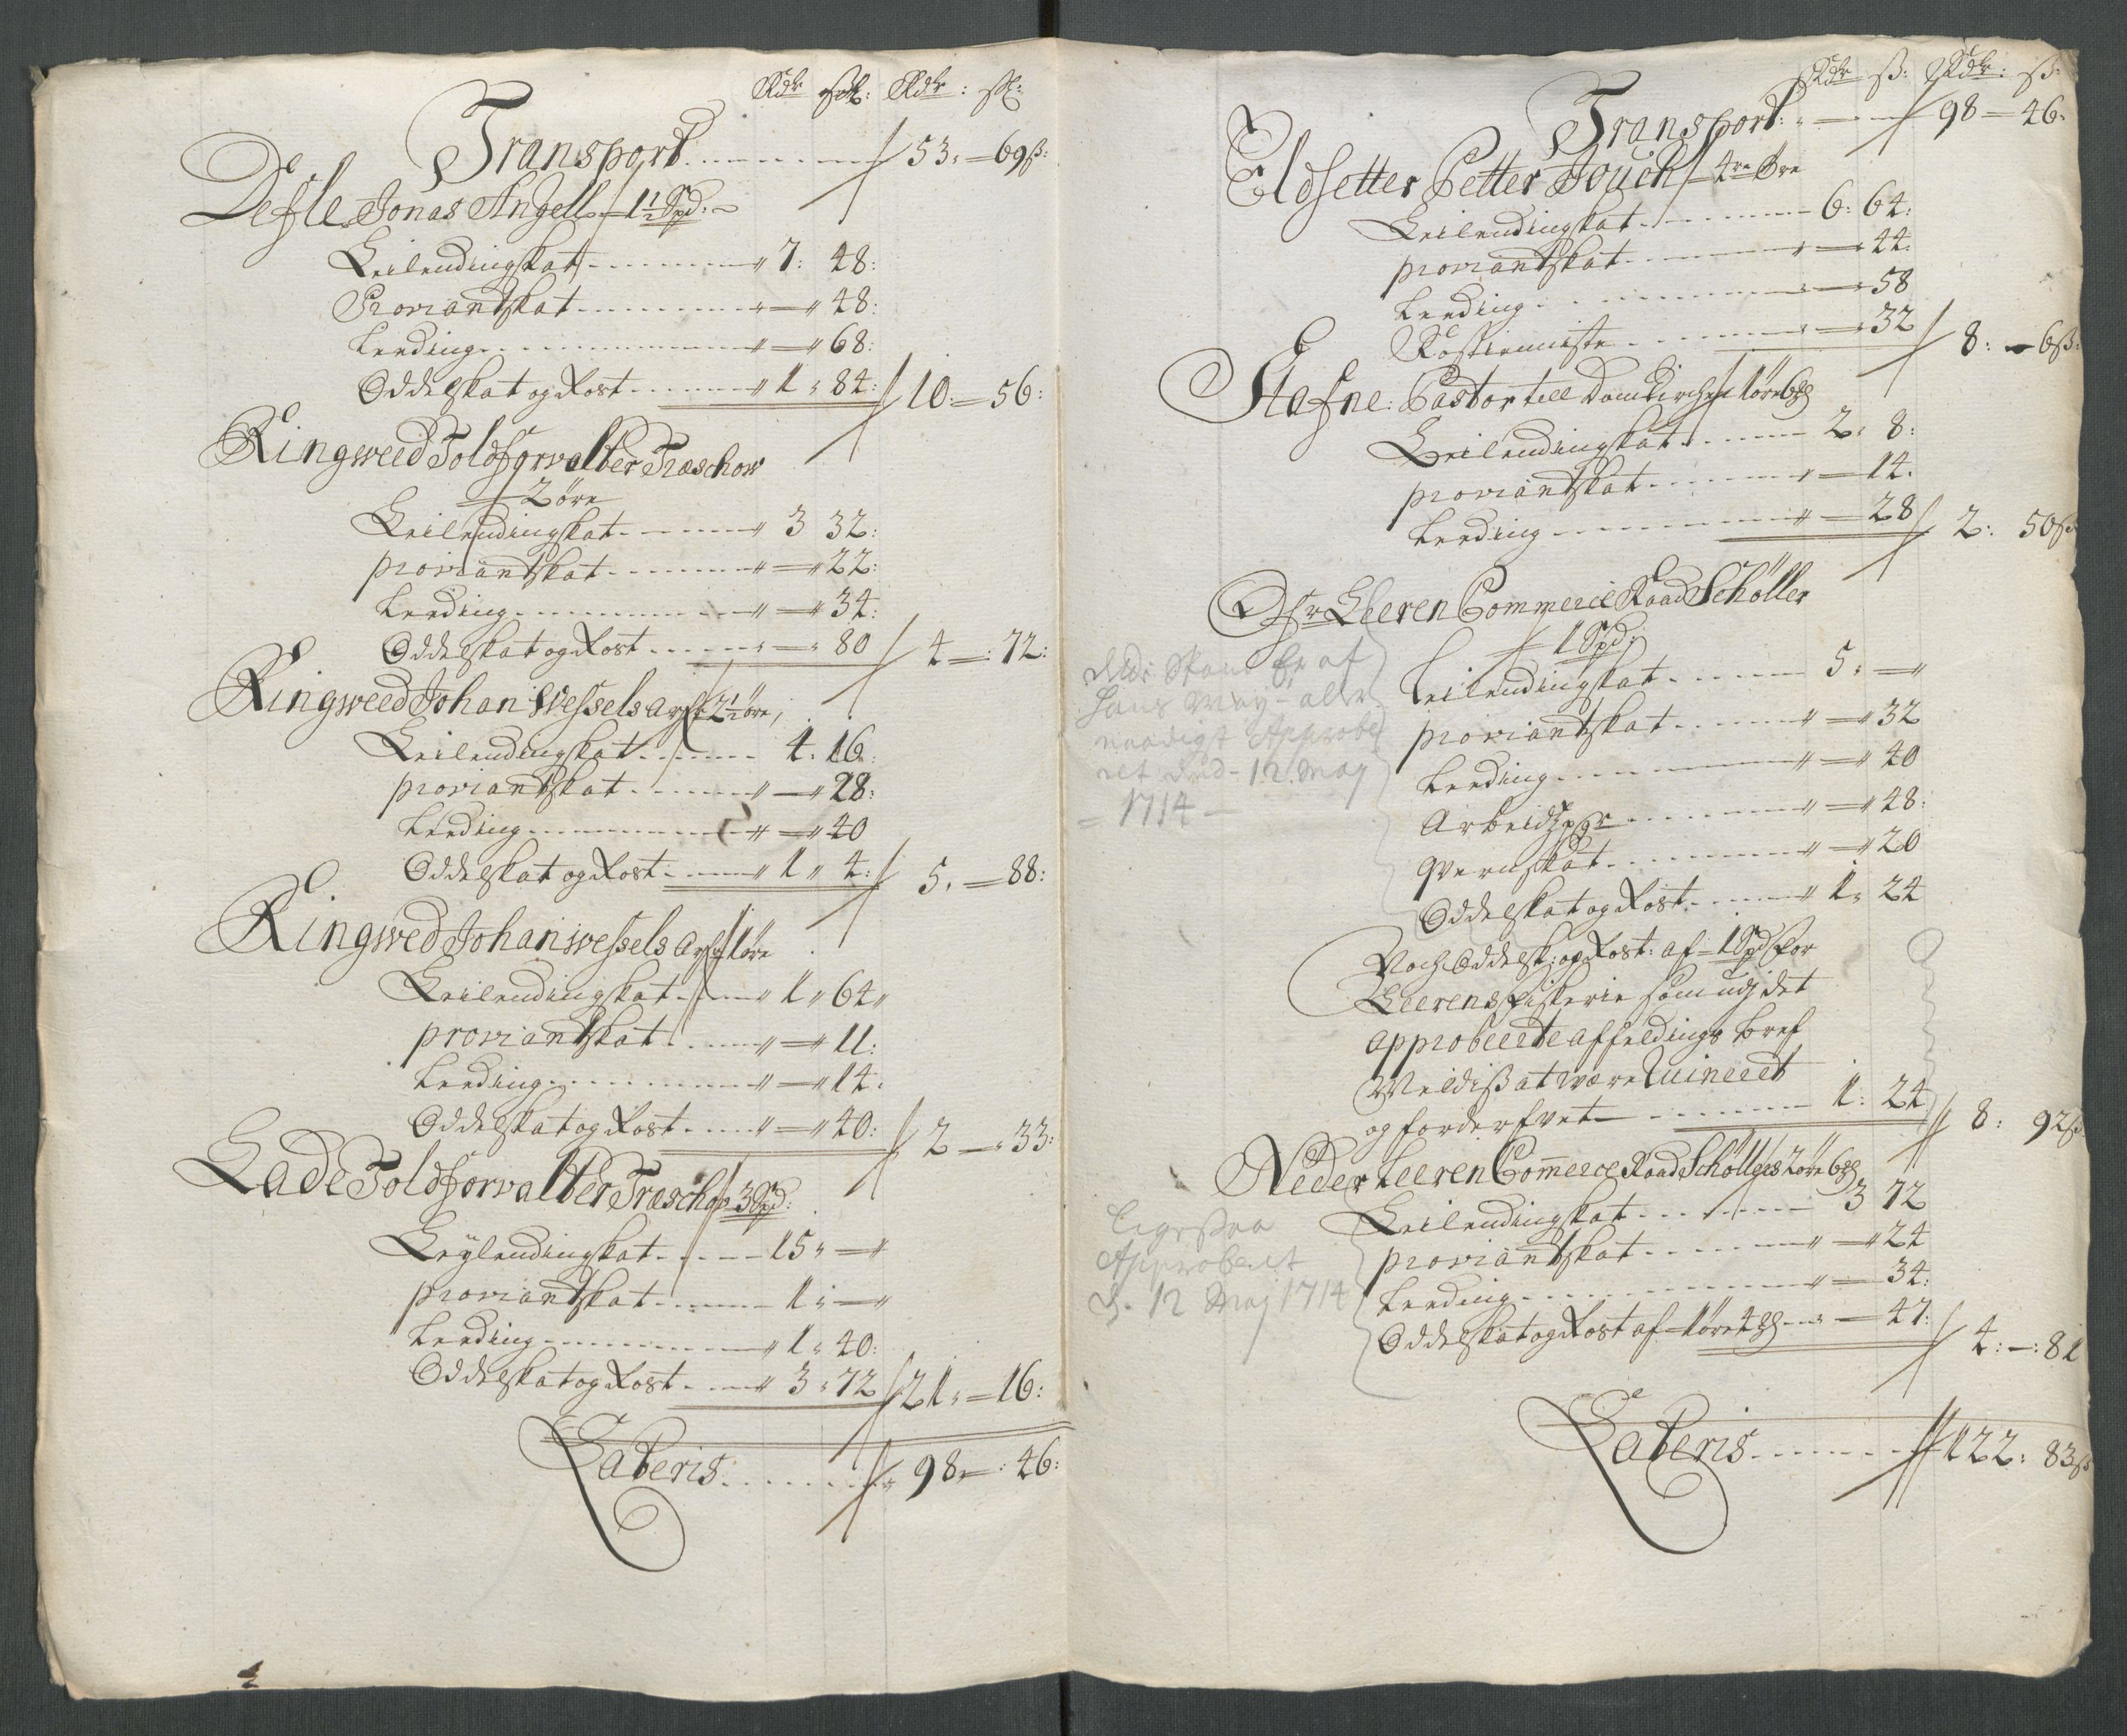 Rdr sk: Rdr: sk:
Transport 53 — 69ß:
Defle Jonas Angell — 1½ Spd:
Leilendingskat 7: 48:
Proviantskat " — " 48:
Leeding " — " 68:
Oddelskat og Rost " 1 " 84: 10: — 56:
Ringweed Toldforvalter Træschow
2 öre
Leilendingskat 3 32:
proviantskat " — " 22:
Leeding " — " 34:
Oddelskat og Rost " — " 80 4 — 72:
Ringweed Johan Wessels arfr 2½ öre,
Leilendingskat 4. 16.
proviantskat " — " 28:
Leding " — " 40
Oddelskat og Rost " 1 " 4: 5. — 88:
Ringwed Johan wessels arfr 1 öre
Leilendingskat " 1 " 64 "
proviantskat " — " 11:
Leeding " — " 14.
Oddelskat og Rost " — " 40: 2 — 33:
Lade Toldforvalter Træschow 3 Spd:
Leÿlendingskat 15 " — "
proviantskat 1 " — "
Leeding " 1 " 40:
Oddelskat og Rost " 3 " 72 21 " — 16:
Lateris 98 — 46:
Rdr ß: Rdr: ß:
Transport: 98 — 46.
Eldsetter Petter Jouch — 4re Öre
Leilendingskat 6: 64:
proviantskat " — 44:
Leeding " — 58
Rostieniste " — 32 8: — 6ß:
Stafne: Pastor till Domkirchen 1 öre 6
Leilendingskat 2: 8:
proviantskat " — 14.
Leeding " — 28 2: 50ß
Øfr Leeren Commercie Raad Schøller
1 Spd:
Leilendingskat 5: — "
proviantskat " — " 32
Leeding " — " 40
Arbeidzpgr " — " 48:
Qvernskat " — " 20
Oddelskat og Rost " 1 " 24
Noch Oddelsk: og Rost: af 1 Spd for
Leerens fiskerie som udj det
approbeerte affeldings bref
Meldis at være Ruineret
og forderfvet 1: 24 8: 92ß
Neder Leeren Commerce Raad Schøllers 2 öre 6
Leilendingskat 3 72
proviantskat " — " 24
Leeding " — 34:
Oddelskat og Rost af 1 öre 4 " — 47: 4: —: 81
Lateris 122: 83ß
af
Hans May - aller
naadigst Approbe
ret 12. May
1714 —
Approberet
d. 12 Maj 1714